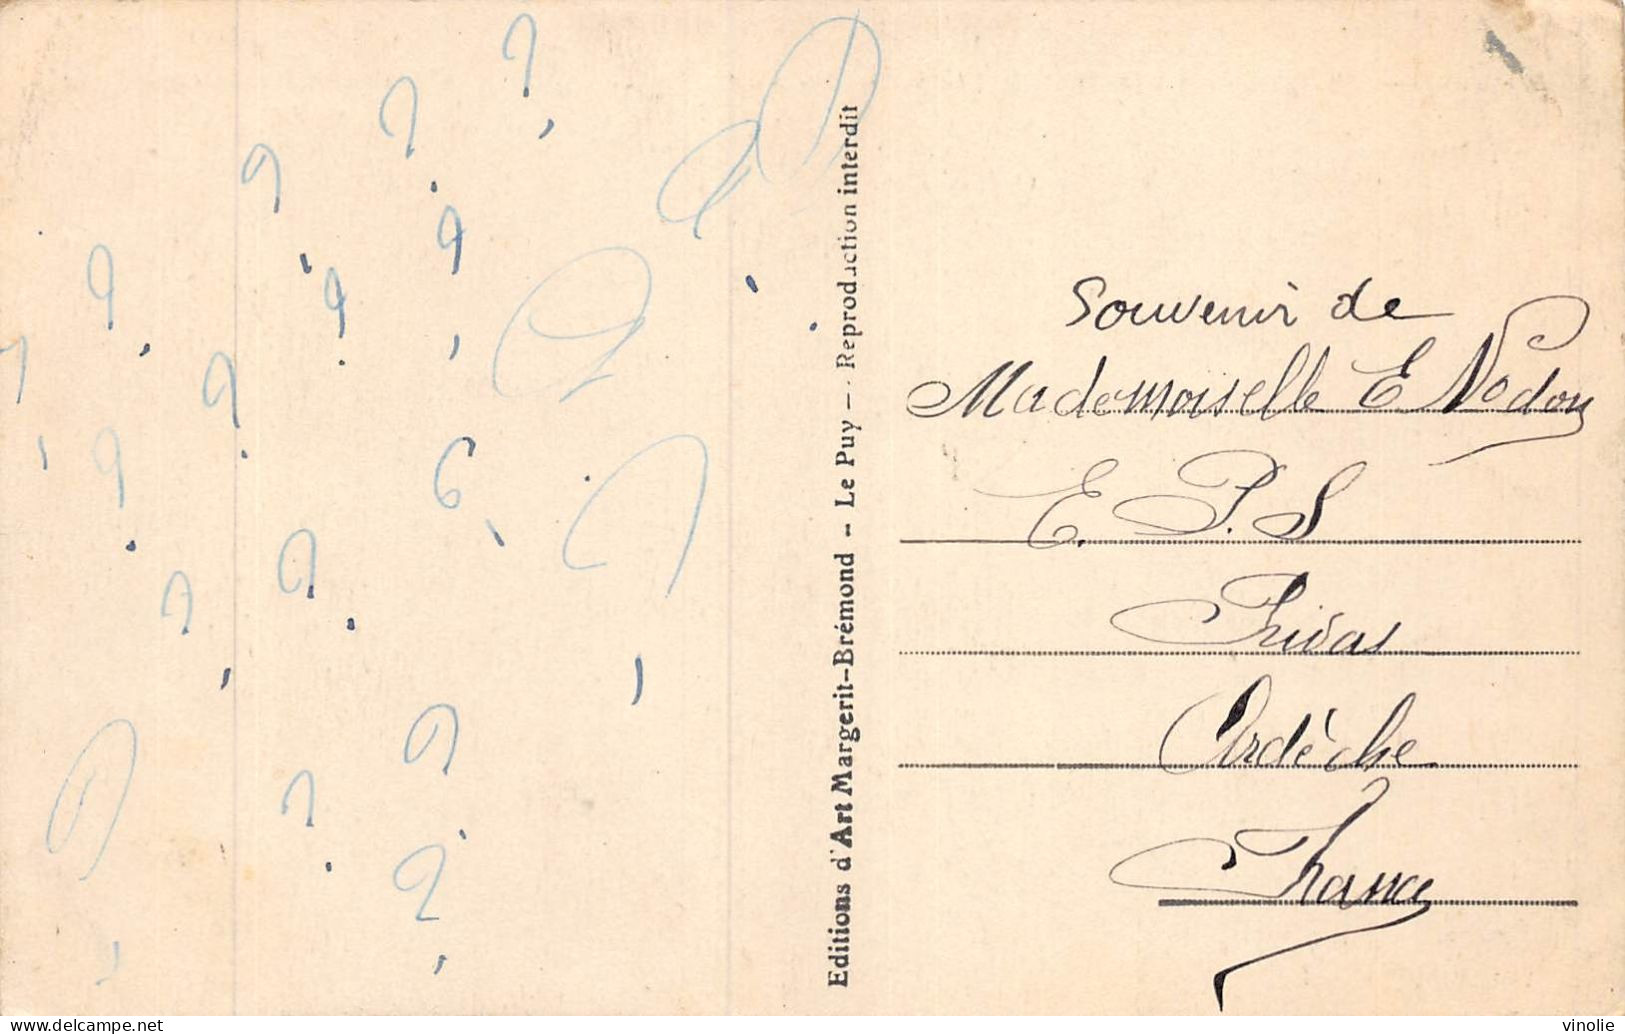 ? ? ? ? ? ? ? ? ? ? ? ? ? ? ? ?
Editions d'Art Margerit-Brémond -- Le Puy -- Reproduction interdit
Souvenir de
Mademoiselle E Nodon
E. P. S
Privas
Ardèche
France
delcampe.net
vinolie